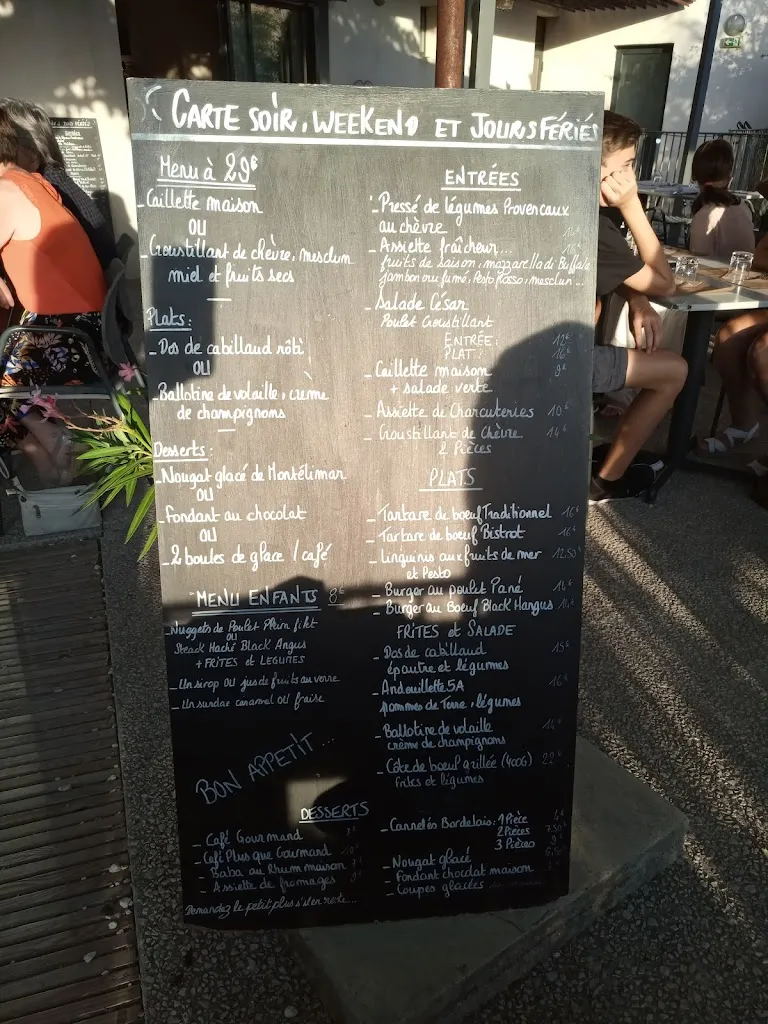 CARTE SOIR, WEEKEND ET JOURS FÉRIÉS
Menu à 29€
- Caillette maison
OU
- Croustillant de chèvre, mesclun
miel et fruits secs
Plats:
- Dos de cabillaud rôti
OU
- Ballotine de volaille, crème
de champignons
Desserts:
- Nougat glacé de Montélimar
OU
- Fondant au chocolat
OU
- 2 boules de glace / café
MENU ENFANTS 8€
- Nuggets de Poulet Plein filet
OU
Steack Haché Black Angus
+ FRITES et LEGUMES
- Un sirop OU jus de fruits au verre
- Un sundae caramel OU fraise
BON APPETIT...
ENTRÉES
- Pressé de légumes Provencaux
au chèvre
- Assiette fraîcheur...
fruits de saison, mozzarella di Buffala
jambon cru fumé, Pesto Rosso, mesclun...
- Salade César
Poulet Croustillant
ENTRÉE: 12€
PLAT: 16€
- Caillette maison 9€
+ salade verte
- Assiette de Charcuteries 10€
- Croustillant de Chèvre 14€
2 Pièces
PLATS
- Tartare de boeuf Traditionnel 16€
- Tartare de boeuf Bistrot 16€
- Linguinis aux fruits de mer 12.50€
et Pesto
- Burger au poulet Pané 14€
- Burger au Boeuf Black Hangus
FRITES et SALADE
- Dos de cabillaud 15€
épautre et légumes
- Andouillette 5A 16€
pommes de Terre, légumes
- Ballotine de volaille 14€
crème de champignons
- Côte de boeuf grillée (400G) 22€
frites et légumes
DESSERTS
- Café Gourmand
- Café Plus que Gourmand
- Baba au Rhum maison
- Assiette de fromages
Demandez le petit plus s'il en reste...
- Cannelés Bordelais: 1 Pièce 4€
2 Pièces 7.50€
3 Pièces 9€
- Nougat glacé
- Fondant chocolat maison
- Coupes glacées